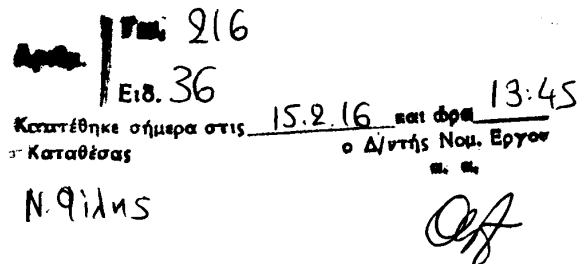 Αριθμ. Γεν. 216
Ειδ. 36
Κατατέθηκε σήμερα στις 15.2.16 και ώρα 13:45
Καταθέσας ο Δ/ντής Νομ. Εργου
κ. α.
Ν. Φίλης